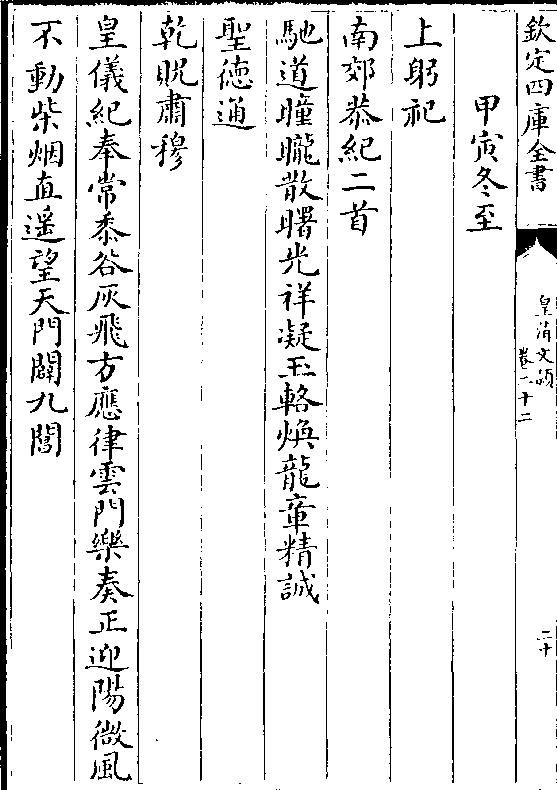 欽定四庫全書
皇清文穎
卷二十二
二十
甲寅冬至
上躬祀
南郊恭紀二首
馳道曈曨散曙光祥凝玉輅煥龍章精誠
聖德通
乾貺肅穆
皇儀紀奉常黍谷灰飛方應律雲門樂奏正迎陽微風
不動柴烟直遥望天門闢九閶